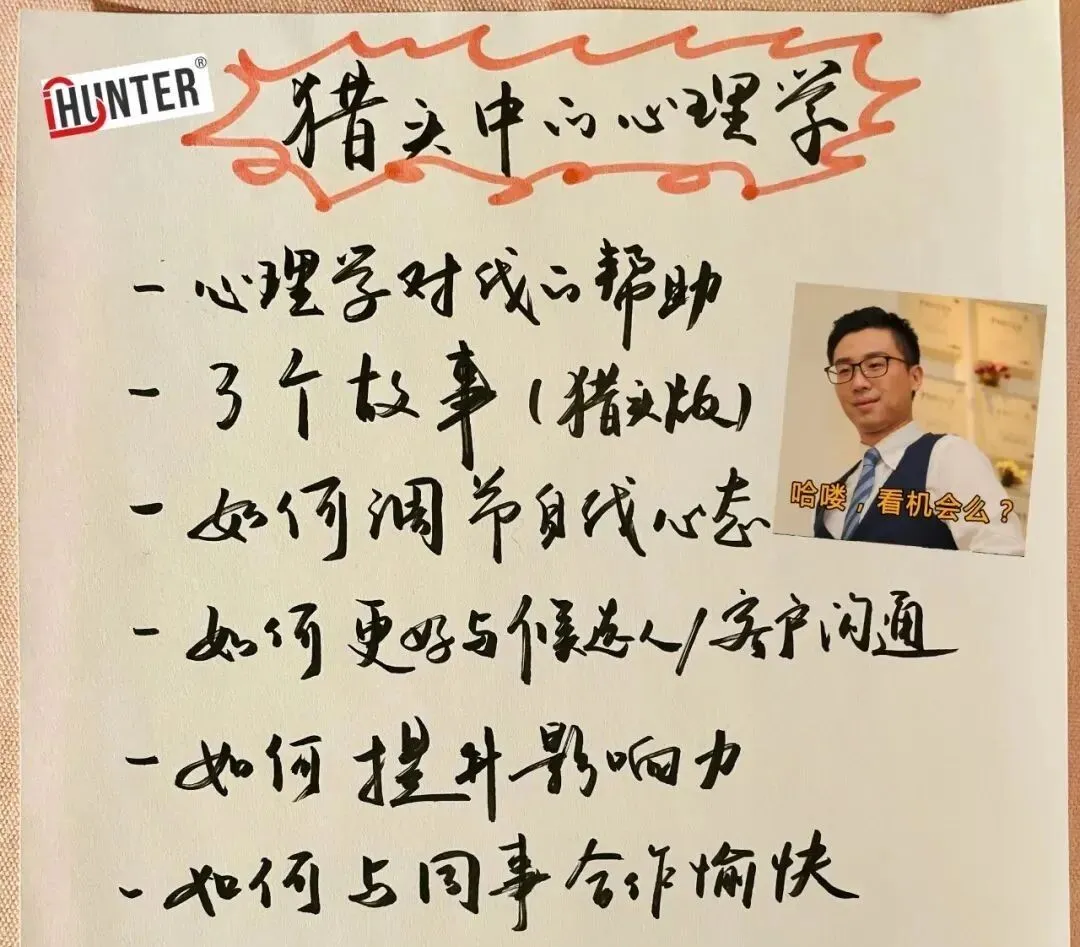 iHUNTER®
猎头中的心理学
- 心理学对我的帮助
- 3个故事(猎头版)
- 如何调节自我心态
哈喽，看机会么？
- 如何更好与候选人/客户沟通
- 如何提升影响力
- 如何与同事合作愉快